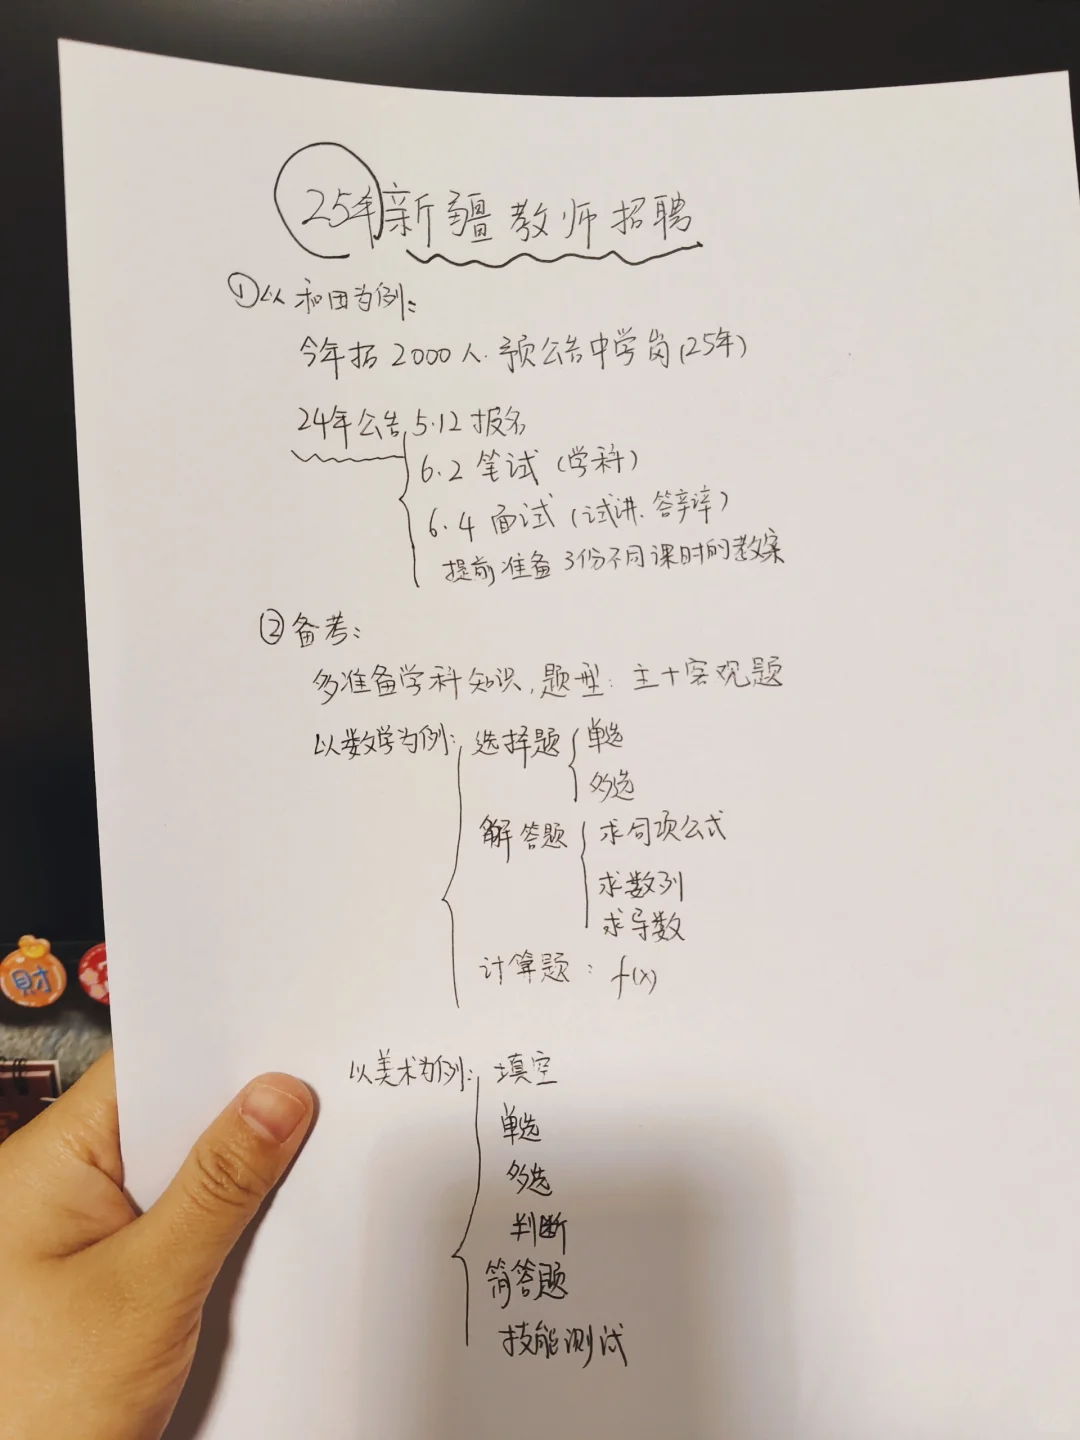 25年新疆教师招聘
①以和田为例:
今年招2000人.预公告中学岗(25年)
24年公告 5.12 报名
6.2 笔试(学科)
6.4 面试(试讲.答辩)
提前准备3份不同课时的教案
②备考:
多准备学科知识,题型:主+客观题
以数学为例: 选择题 单选
多选
解答题 求向项公式
求数列
求导数
计算题: f(x)
以美术为例: 填空
单选
多选
判断
简答题
技能测试
財